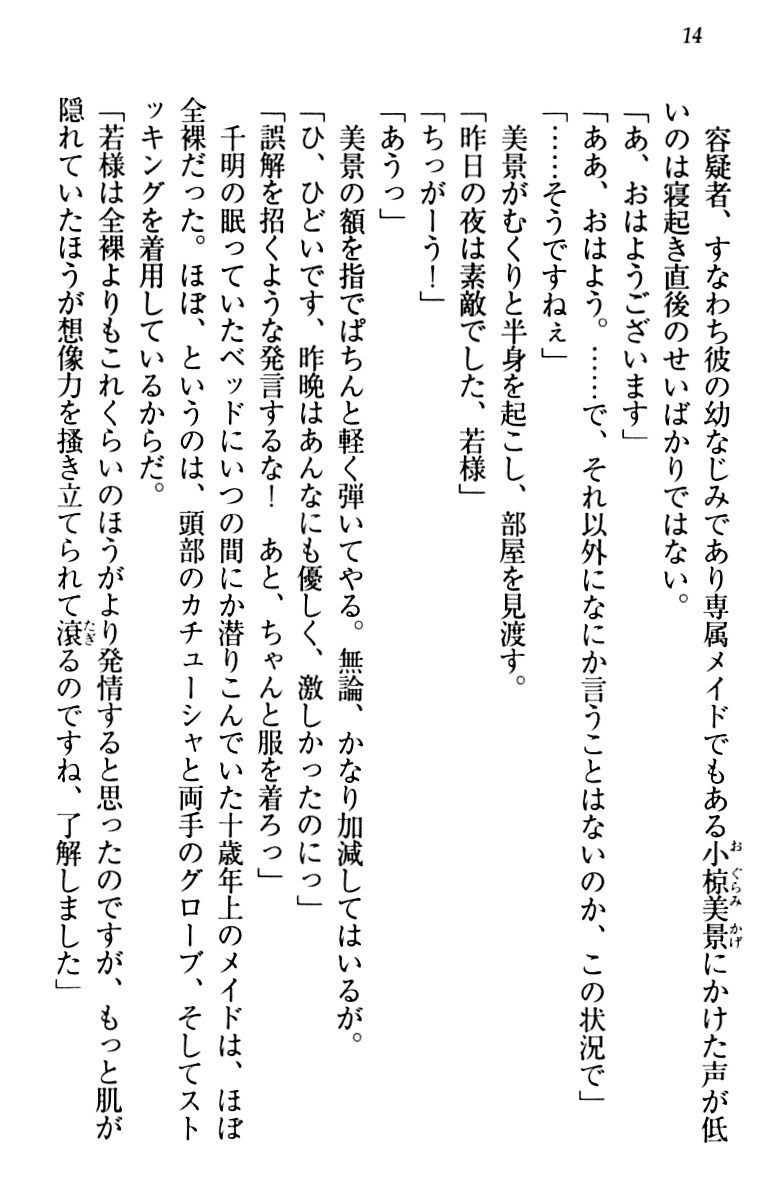 14
容疑者、すなわち彼の幼なじみであり専属メイドでもある小椋美景にかけた声が低
おぐらみかげ
いのは寝起き直後のせいばかりではない。
「あ、おはようございます」
「ああ、おはよう。……で、それ以外になにか言うことはないのか、この状況で」
「……そうですねぇ」
美景がむくりと半身を起こし、部屋を見渡す。
「昨日の夜は素敵でした、若様」
「ちっがーう！」
「あうっ」
美景の額を指でぱちんと軽く弾いてやる。無論、かなり加減してはいるが。
「ひ、ひどいです、昨晩はあんなにも優しく、激しかったのにっ」
「誤解を招くような発言するな！　あと、ちゃんと服を着ろっ」
千明の眠っていたベッドにいつの間にか潜りこんでいた十歳年上のメイドは、ほぼ
全裸だった。ほぼ、というのは、頭部のカチューシャと両手のグローブ、そしてスト
ッキングを着用しているからだ。
「若様は全裸よりもこれくらいのほうがより発情すると思ったのですが、もっと肌が
隠れていたほうが想像力を掻き立てられて滾るのですね、了解しました」
たぎ